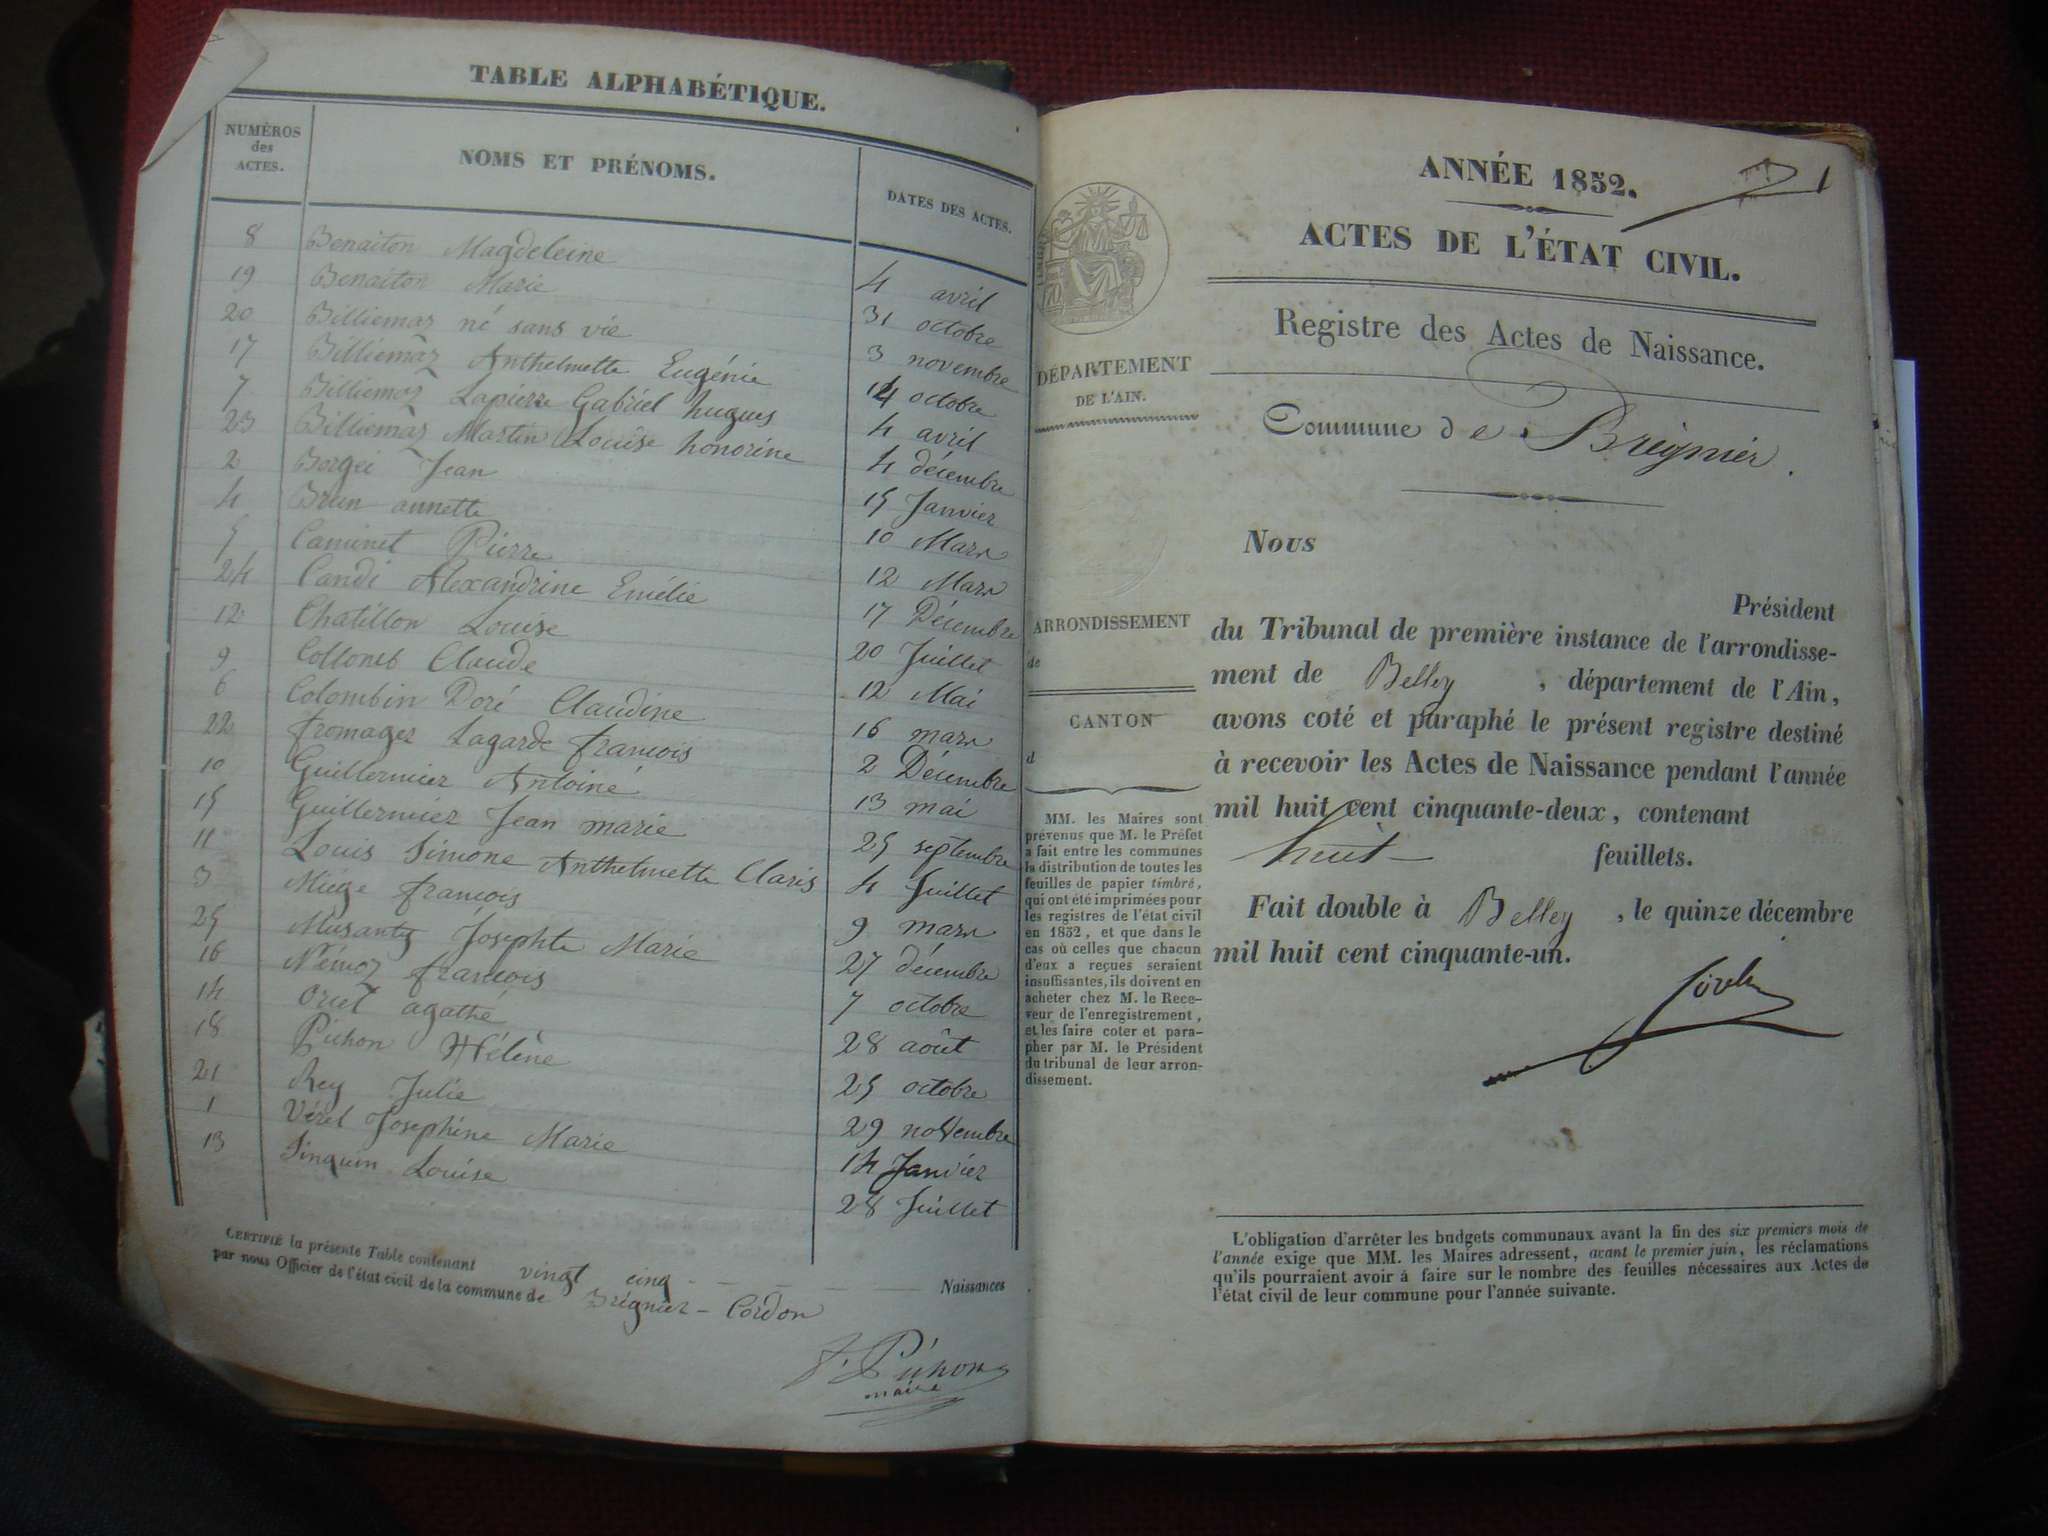 TABLE ALPHABÉTIQUE.
NUMÉROS
des
ACTES.
NOMS ET PRÉNOMS.
DATES DES ACTES.
8 Benaiton Magdeleine 4 avril
19 Benaiton Marie 31 octobre
20 Billiemaz né sans vie 3 novembre
17 Billiemaz Anthelmette Eugénie 14 octobre
7 Billiemaz Lapierre Gabriel hugues 4 avril
23 Billiemaz Martin Louise honorine 4 décembre
2 Borgei Jean 15 Janvier
4 Brun annette 10 Mars
5 Caminet Pierre 12 Mars
24 Candi Alexandrine Emélie 17 Décembre
12 Chatillon Louise 20 Juillet
9 Collomb Claude 12 Mai
6 Colombin Doré Claudine 16 mars
22 fromager Lagarde francois 2 Décembre
10 Guillermier Antoine 13 mai
15 Guillermier Jean marie 25 septembre
11 Louis Simone Anthelmette Claris 4 Juillet
3 Miége francois 9 mars
25 Musanty Josephte Marie 27 décembre
16 Némoz francois 7 octobre
14 oriet agathe 28 août
18 Pichon Hélène 25 octobre
21 Rey Julie 29 novembre
1 Vérel Josephine Marie 14 Janvier
13 Sinquin Louise 28 Juillet
CERTIFIÉ la présente Table contenant vingt cinq Naissances
par nous Officier de l'état civil de la commune de Brégnier-Cordon
J. Pichon
maire
1
ANNÉE 1852.
ACTES DE L'ÉTAT CIVIL.
Registre des Actes de Naissance.
DÉPARTEMENT
DE L'AIN.
Commune de Brégnier.
Nous
Président
ARRONDISSEMENT
de
CANTON
d
du Tribunal de première instance de l'arrondisse-
ment de Belley, département de l'Ain,
avons coté et paraphé le présent registre destiné
à recevoir les Actes de Naissance pendant l'année
mil huit cent cinquante-deux, contenant
huit feuillets.
Fait double à Belley, le quinze décembre
mil huit cent cinquante-un.
MM. les Maires sont
prévenus que M. le Préfet
a fait entre les communes
la distribution de toutes les
feuilles de papier timbré,
qui ont été imprimées pour
les registres de l'état civil
en 1852, et que dans le
cas où celles que chacun
d'eux a reçues seraient
insuffisantes, ils doivent en
acheter chez M. le Rece-
veur de l'enregistrement,
et les faire coter et para-
pher par M. le Président
du tribunal de leur arron-
dissement.
L'obligation d'arrêter les budgets communaux avant la fin des six premiers mois de
l'année exige que MM. les Maires adressent, avant le premier juin, les réclamations
qu'ils pourraient avoir à faire sur le nombre des feuilles nécessaires aux Actes de
l'état civil de leur commune pour l'année suivante.